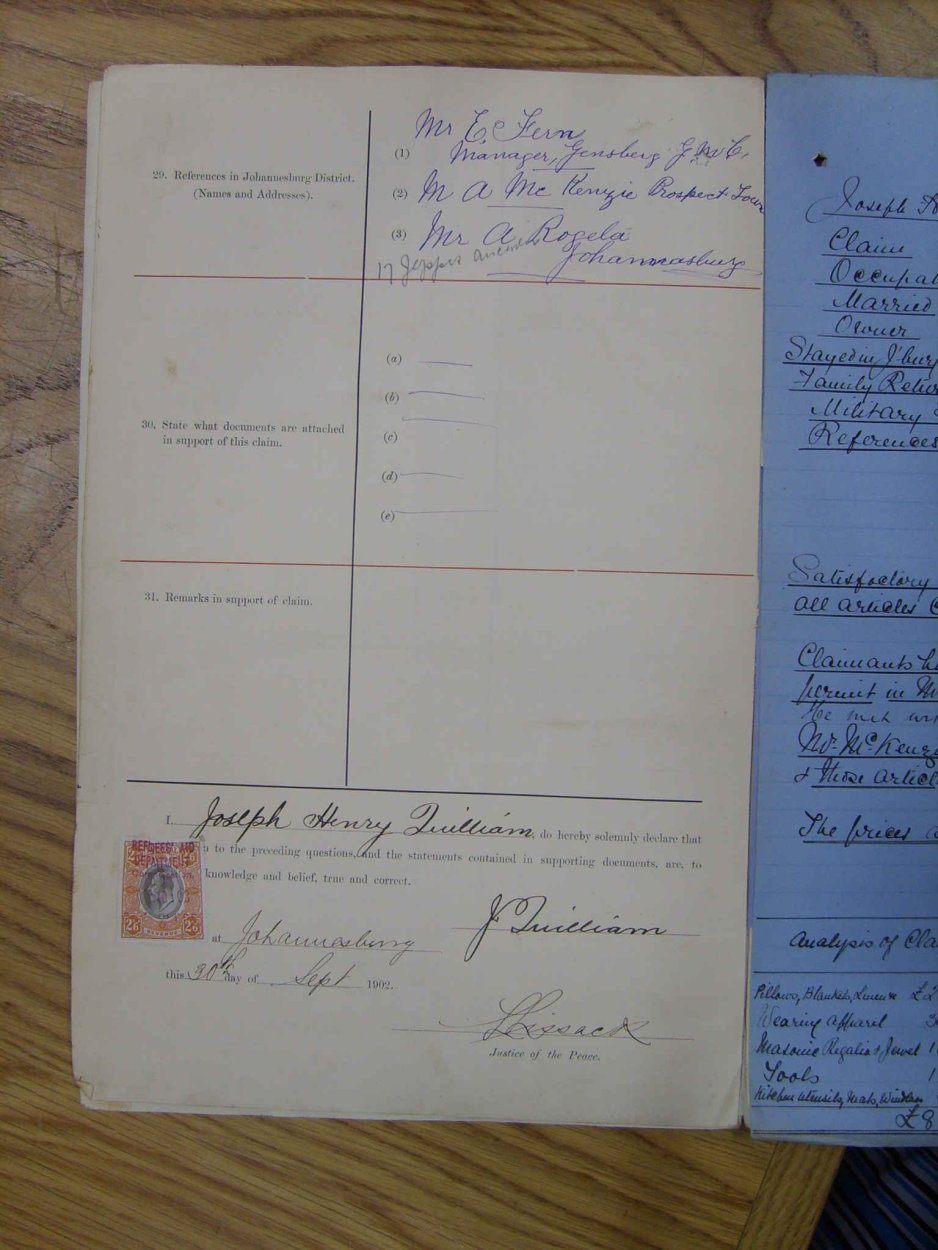 Mr E C Fern
(1) Manager, Gensberg G M C,
29. References in Johannesburg District.
(Names and Addresses).
(2) M A McKenzie Prospect Town
(3) Mr A Rogela
Johannesburg
17 Jeppes
(a)
(b)
30. State what documents are attached
in support of this claim.
(c)
(d)
(e)
31. Remarks in support of claim.
I, Joseph Henry Quilliam, do hereby solemnly declare that
to the preceding questions, and the statements contained in supporting documents, are, to
knowledge and belief, true and correct.
REFUGEES' AID
DEPARTMENT
2/6 REVENUE 2/6
J Quilliam
at Johannesburg
this 30th day of Sept 1902.
L Lissack
Justice of the Peace.
Joseph
Claim
Occupat
Married
Owner
Stayed in J'burg
Family Retur
Military
References
Satisfactory
all articles
Claimants ha
permit in
He met
Mr McKenz
& these articl
The prices
Analysis of Cla
Pillows, Blankets, Linen £2
Wearing apparel 3
Masonic Regalia & Jewel 1
Tools 1
Kitchen utensils, Mats, Window
£8